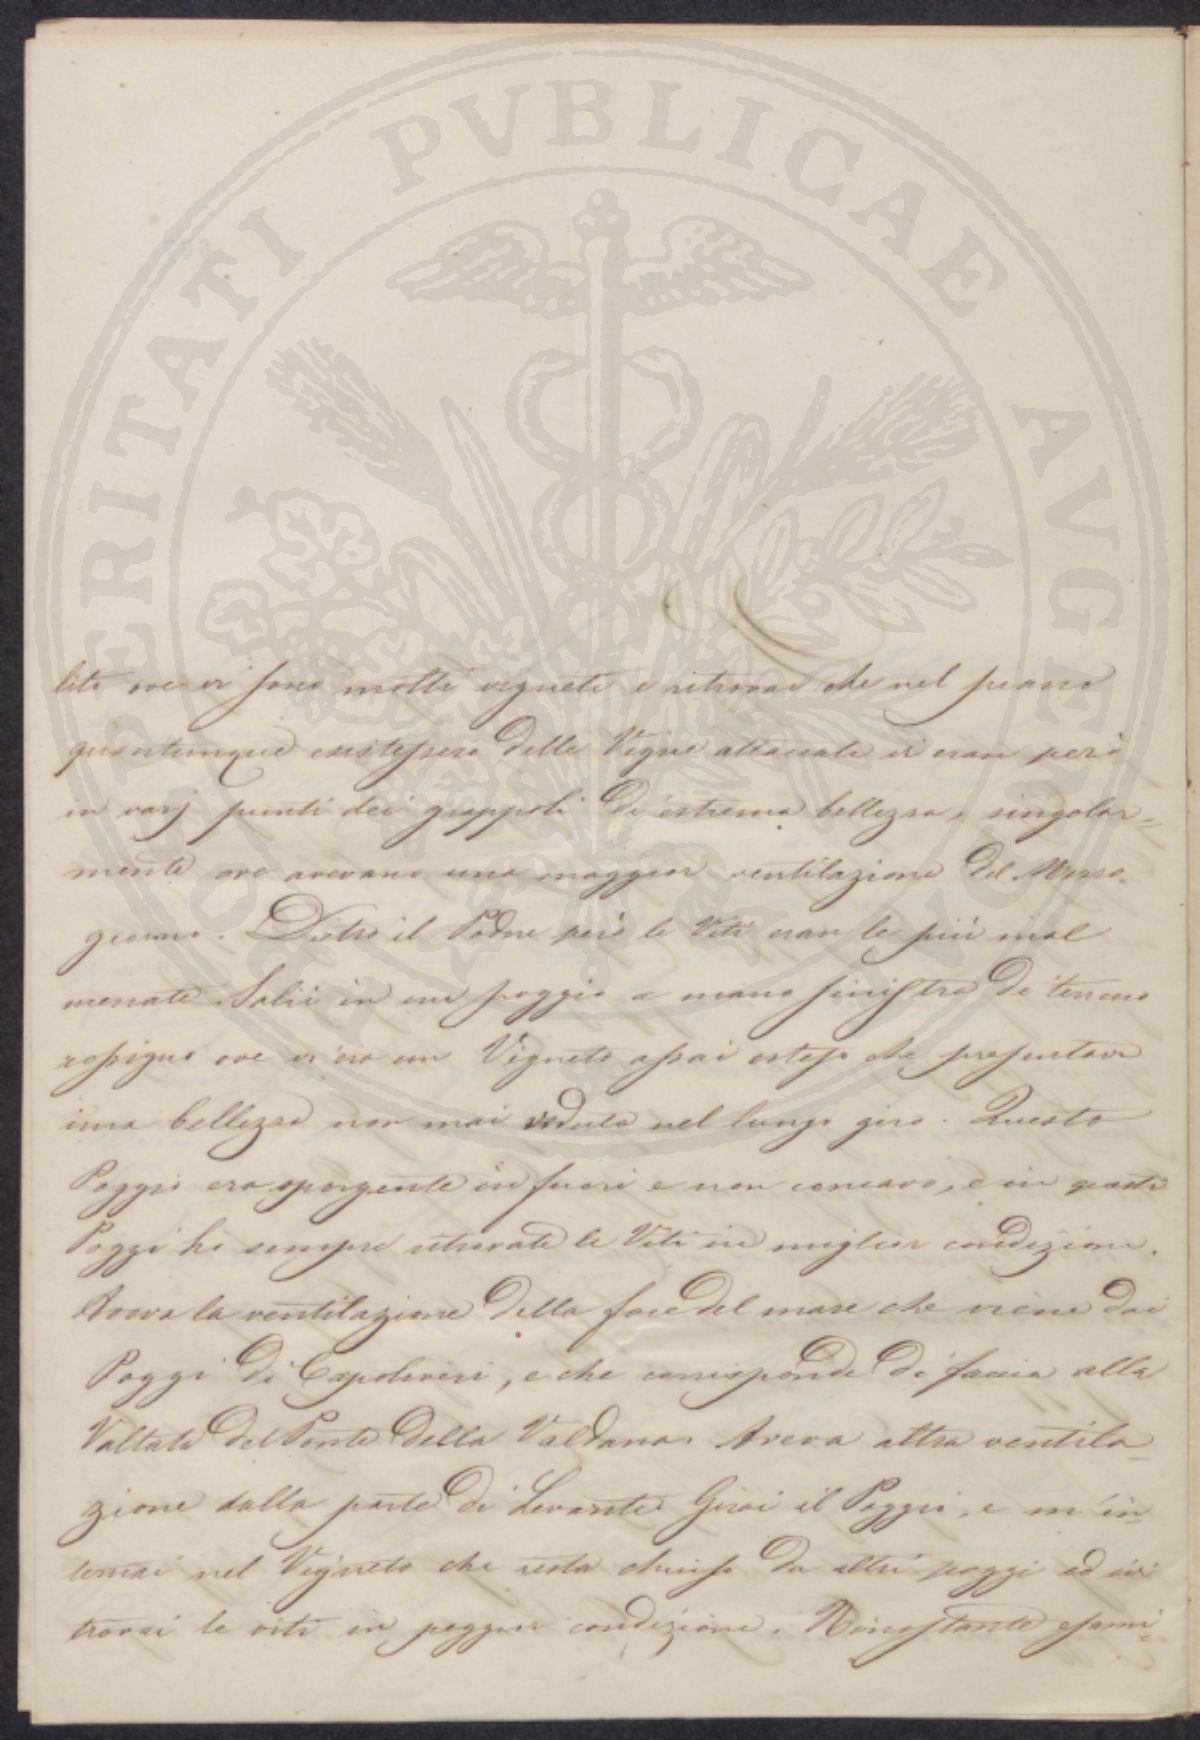 PROSPERITATI PVBLICAE AVGENDAE
liti ove vi sono molti vigneti e ritrovai che nel piano
quantunque esistessero delle Vigne attaccate vi eran però
in varj punti dei grappoli di estrema bellezza, singolar=
mente ove avevano una maggior ventilazione del Mezzo-
giorno. Dietro il Padre però le Viti eran le più mal
menate. Salii in un poggio a mano sinistra di terreno
rossigno ove vi era un Vigneto assai esteso che presentava
una bellezza non mai veduta nel lungo giro. Questo
Poggio era sporgente in fuori e non concavo, e in questi
Poggi ho sempre ritrovate le Viti in miglior condizione.
Aveva la ventilazione della foce del mare che viene dai
Poggi di Capoliveri, e che corrisponde di faccia alla
Vallata del Ponte della Valdana. Aveva altra ventila=
zione dalla parte di Levante. Girai il Poggio, e m'in=
ternai nel Vigneto che resta chiuso da altri poggi ed ivi
trovai le viti in peggior condizione. Nonostante esami=